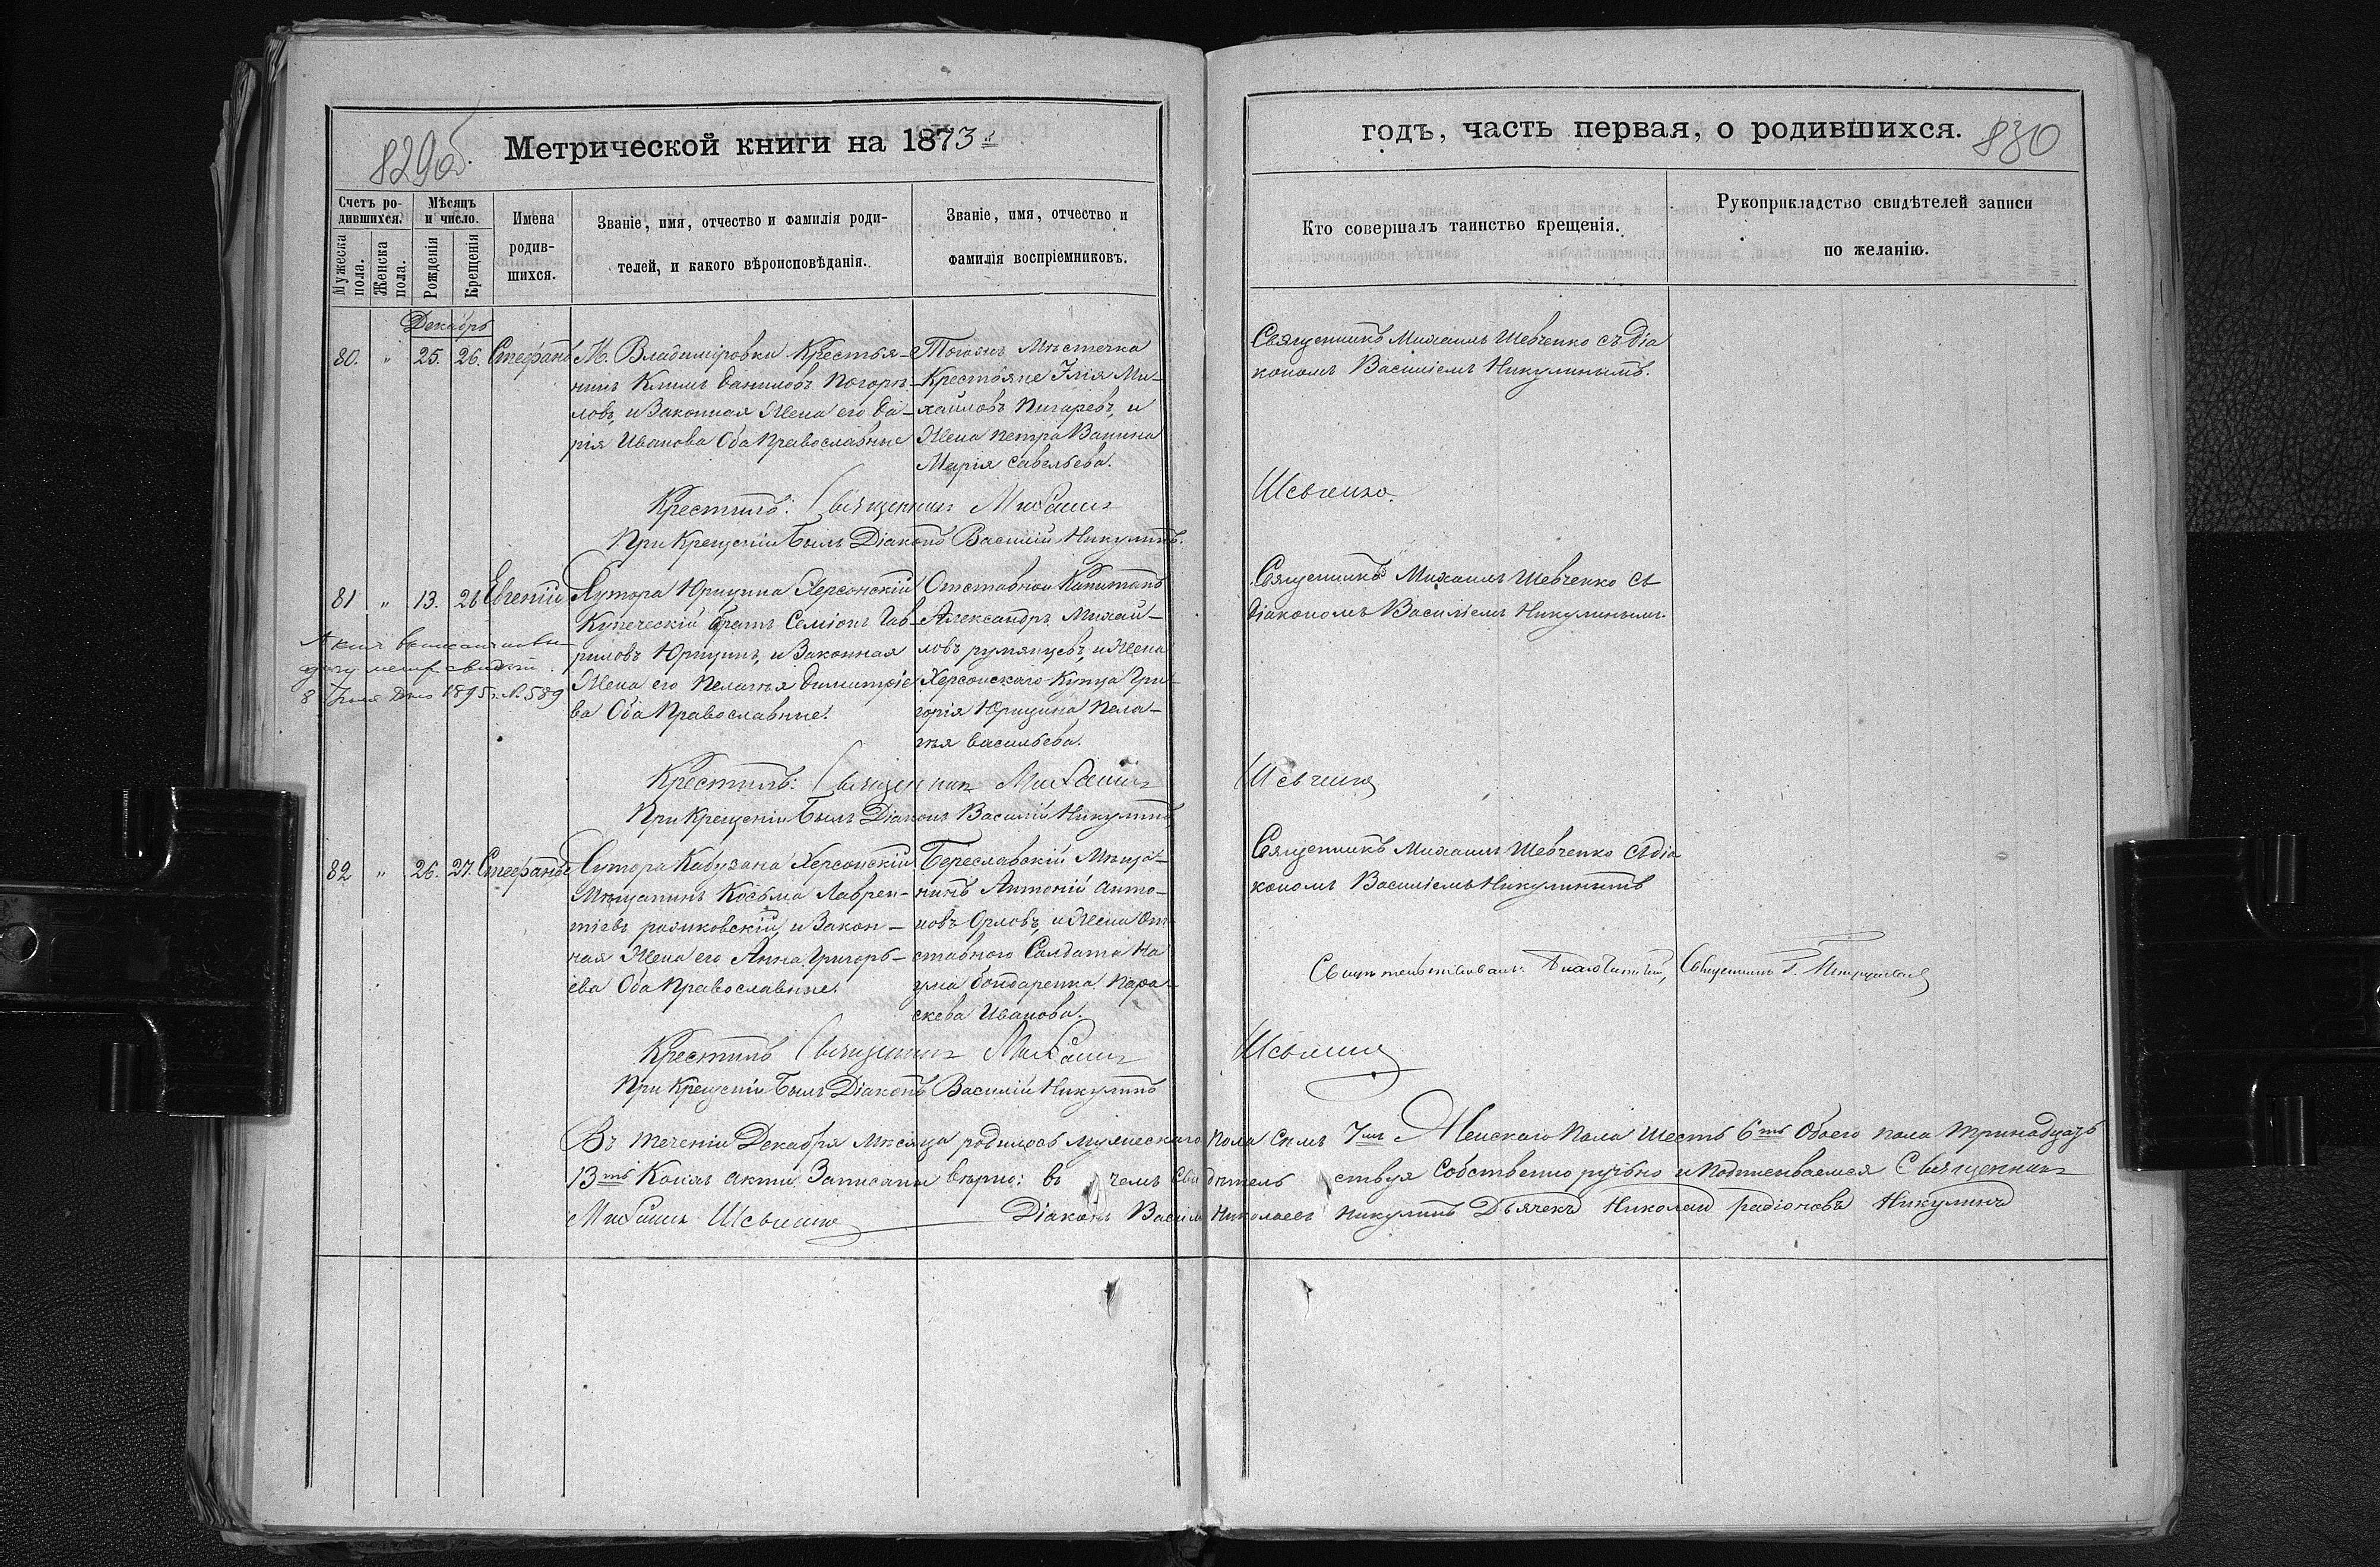 829 об.
Метрической книги на 1873й
Счетъ родившихся.
Мужеска пола.
Женска пола.
Мѣсяцъ и число.
Рожденія
Крещенія
Имена родив-
шихся.
Званіе, имя, отчество и фамилія роди-
телей, и какого вѣроисповѣданія.
Званіе, имя, отчество и
фамилія воспріемниковъ.
Декабрь
80. " 25. 26. Стефанъ
М. Владиміровки Крестья-
нинъ Климъ Даниловъ Погорѣ-
ловъ, и Законная Жена его Да-
рія Иванова Оба Православные
Тогожъ Мѣстечка
Крестьяне Илія Ми-
хайловъ Пигаревъ, и
Жена Петра Ванина
Марія Савельева.
Крестилъ: Священникъ Михаилъ
При Крещеніи Былъ Діаконъ Василій Никулинъ.
81 " 13. 26 Евгеній
Хутора Юрицина Херсонскій
Купеческій братъ Семіонъ Гав-
риловъ Юрицинъ, и Законная
Жена его Пелагія Димитріе
ва Оба Православные.
Отставной Капитанъ
Александръ Михай-
ловъ румянцевъ, и Жена
Херсонскаго Купца Гри-
горія Юрицина Пела-
гія Васильева.
8 Іюля 1895 г. № 589
Крестилъ: Священник Михаилъ
При Крещеніи Былъ Діаконъ Василій Никулинъ
82 " 26. 27. Стефанъ
Хутора Кабузана Херсонскій
Мѣщанинъ Косьма Лаврен-
тіевъ и Закон-
ная Жена его Анна Григорь-
ева Оба Православные.
Береславскій Мѣща-
нинъ Антоній Анто-
новъ Орловъ, и Жена От
ставного Солдата На
ума Бондаренка Пара-
скева Иванова.
Крестилъ Священникъ Михаилъ
При Крещеніи Былъ Діаконъ Василій Никулинъ
годъ, часть первая, о родившихся.
830
Кто совершалъ таинство крещенія.
Рукоприкладство свидѣтелей записи
по желанію.
Священникъ Михаилъ Шевченко съ діа
кономъ Василіемъ Никулинымъ.
Шевченко.
Священникъ Михаилъ Шевченко съ
діакономъ Василіемъ Никулинымъ
Шевченко
Священникъ Михаилъ Шевченко съ діа
кономъ Василіемъ Никулинымъ
Свидѣтельствовалъ: Благочинный, Священникъ Г.
Шевченко
Въ теченіи Декабря мѣсяца родилось мужескаго пола семь 7мь Женскаго Пола Шесть 6ть Обоего пола тринадцать
13ть Коихъ акты Записаны вѣрно: въ чемъ свидѣтельствуя Собственноручно и подписываемся Священникъ
Михаилъ Шевченко Діаконъ Василій Николаевъ Никулинъ Дьячекъ Николай радіоновъ Никулинъ